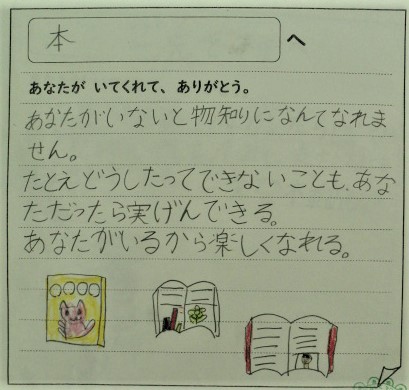 本
へ
あなたが いてくれて、ありがとう。
あなたがいないと物知りになんてなれま
せん。
たとえどうしたってできないことも、あな
ただったら実げんできる。
あなたがいるから楽しくなれる。